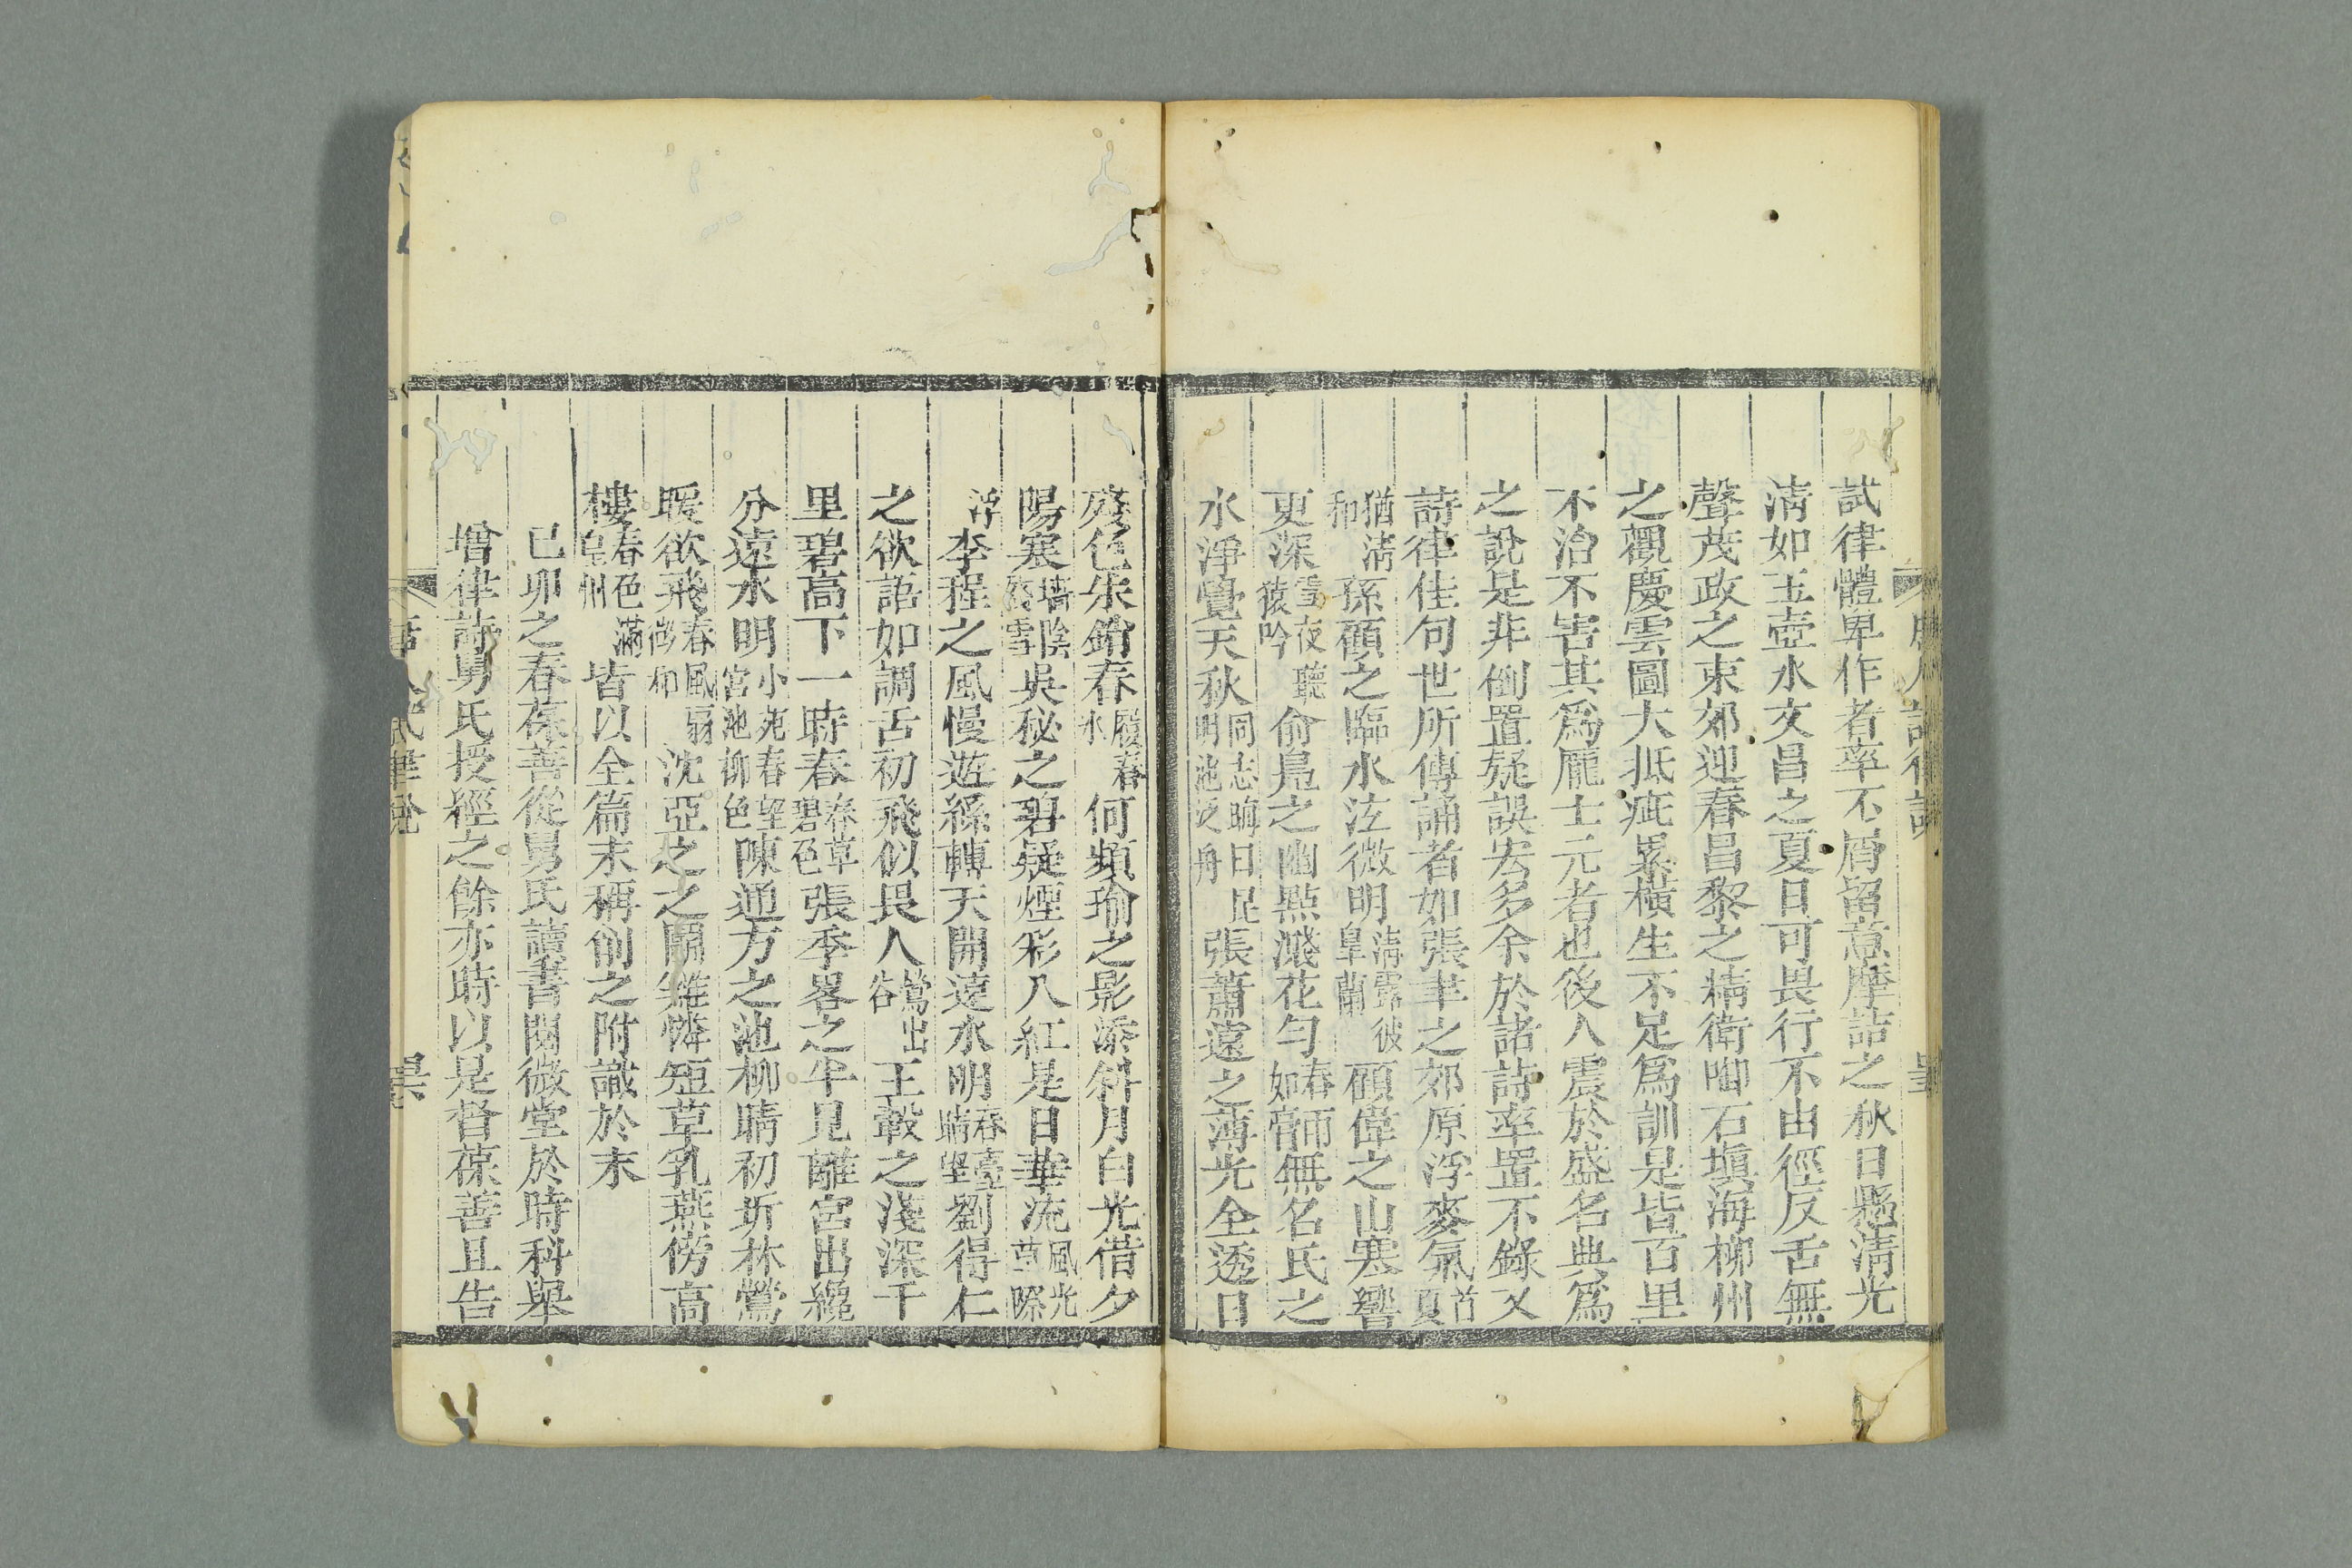 試律體卑作者率不屑留意摩詰之秋日懸淸光
淸如玉壺水文昌之夏日可畏行不由徑反舌無
聲茂政之東郊迎春昌黎之精衛啣石塡海柳州
之觀慶雲圖大抵疵累橫生不足爲訓是皆百里
不治不害其爲龎士元者也後人震於盛名典爲
之說是非倒置疑誤宏多余於諸詩率置不錄又
詩律佳句世所傳誦者如張聿之郊原浮麥氣首夏
猶淸和孫頎之臨水泫微明淸露被臯蘭顧偉之山寒響
更深雪夜聽猿吟俞鳧之幽點濺花勻春雨如膏無名氏之
水淨覺天秋同志晦日昆明池泛舟張蕭遠之薄光全透日
殘色朱銷春履春冰何頻瑜之影添斜月白光借夕
陽寒墙陰殘雪吳秘之碧疑煙彩入紅是日華流風光草際
浮李程之風慢遊絲轉天開遠水明春臺晴望劉得仁
之欲語如調舌初飛似畏人鶯出谷王轂之淺深千
里碧高下一時春春草碧色張季畧之半見離宮出纔
分遠水明小苑春望宮池柳色陳通方之池柳晴初坼林鶯
暖欲飛春風扇微和沈亞之之鬭雞憐短草乳燕傍高
樓春色滿皇州皆以全篇未稱創之附識於末
己卯之春葆善從舅氏讀書閱微堂於時科舉
增律詩舅氏授經之餘亦時以是督葆善且告